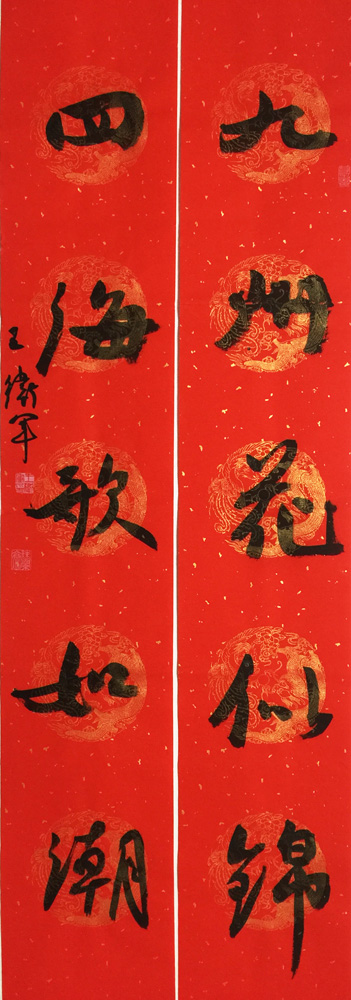 九州花似锦
四海歌如潮
王卫军